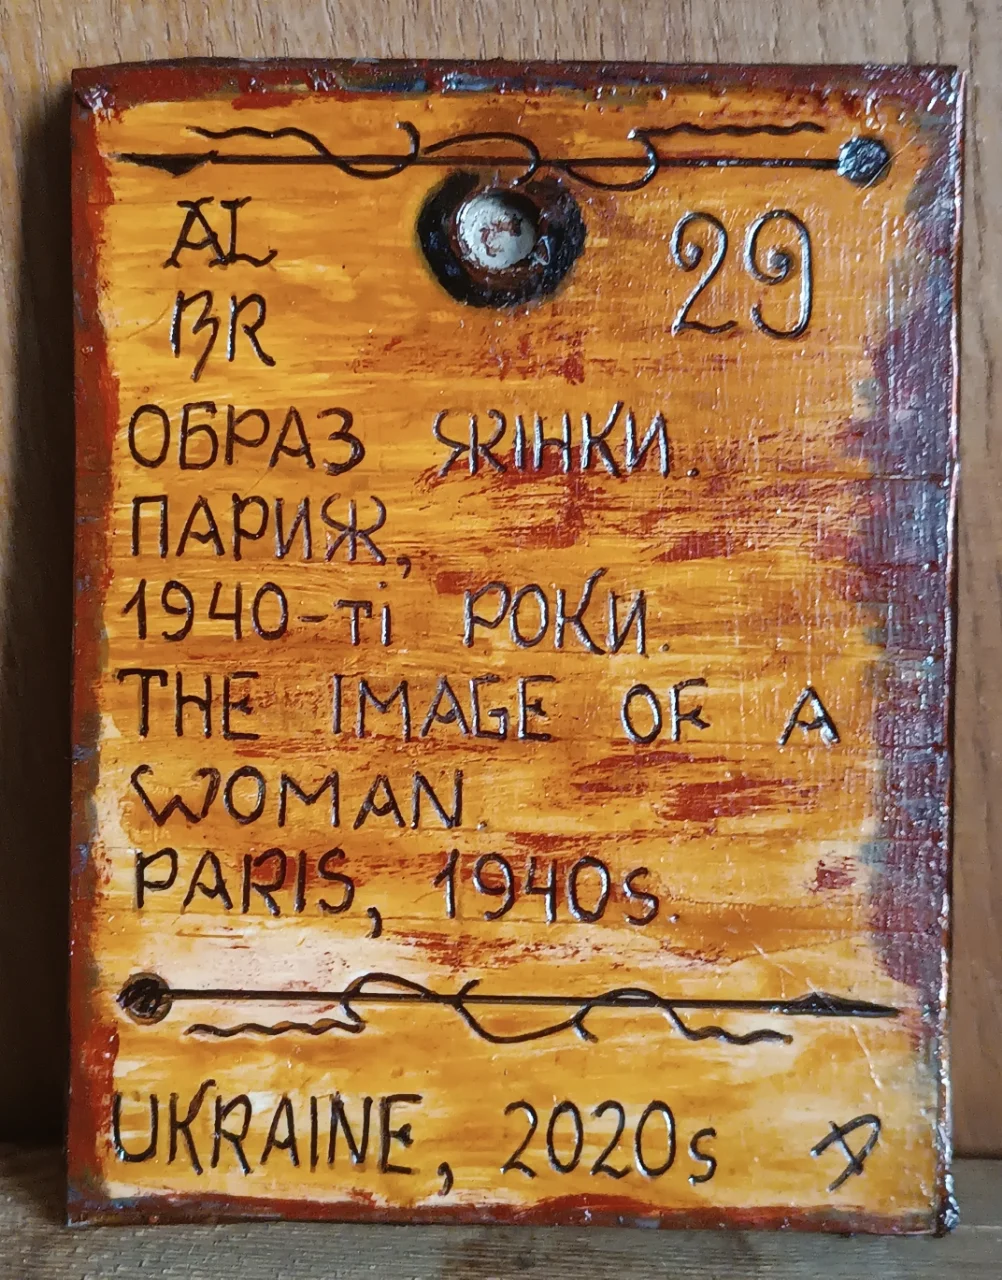 AL
BR
29
ОБРАЗ ЖІНКИ.
ПАРИЖ,
1940-ті РОКИ.
THE IMAGE OF A
WOMAN.
PARIS, 1940s.
UKRAINE, 2020s